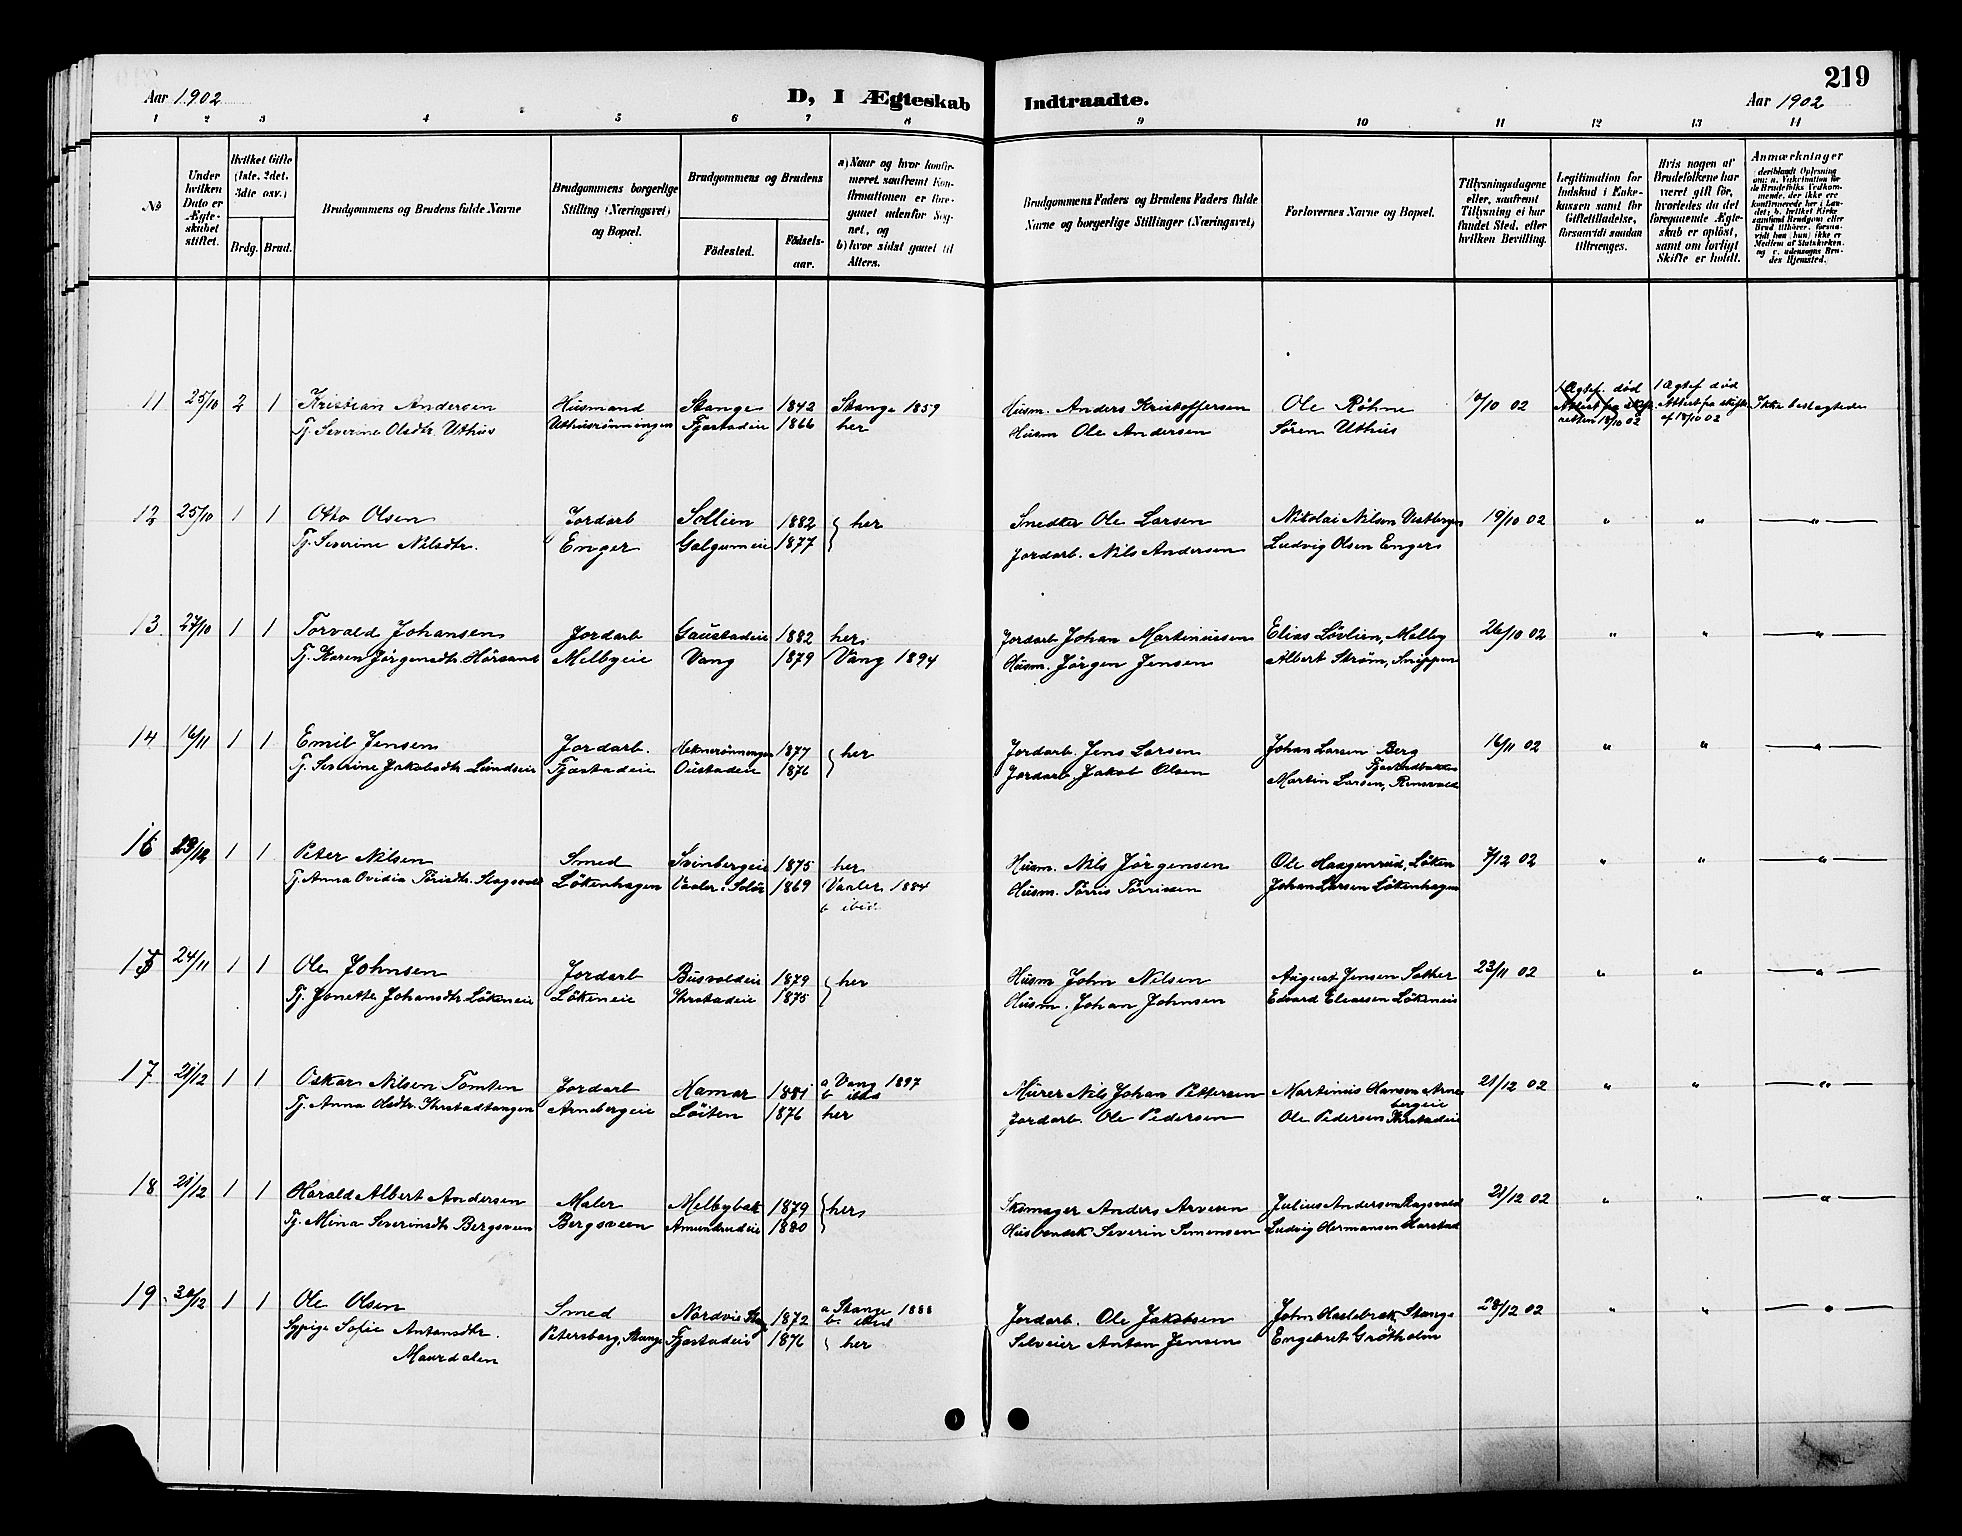 219
Aar 1902
D, I Ægteskab Indtraadte.
Aar 1902
1 2 3 4 5 6 7 8 9 10 11 12 13 14
No
Under hvilken Dato er Ægteskabet stiftet.
Hvilket Gifte (1ste, 2det, 3die osv.)
Brdg. Brud.
Brudgommens og Brudens fulde Navne
Brudgommens borgerlige Stilling (Næringsvei) og Bopæl.
Brudgommens og Brudens
Födested.
Födselsaar.
a) Naar og hvor konfirmeret, saafremt Konfirmationen er foregaaet udenfor Sognet, og
b) hvor sidst gaaet til Alters.
Brudgommens Faders og Brudens Faders fulde Navne og borgerlige Stillinger (Næringsvei)
Forlovernes Navne og Bopæl.
Tillysningsdagene eller, saafremt Tillysning ei har fundet Sted, efter hvilken Bevilling.
Legitimation for Indskud i Enkekassen samt for Giftetilladelse, forsaavidt saadan tiltrænges.
Hvis nogen af Brudefolkene har været gift för, hvorledes da det foregaaende Ægteskab er oplöst, samt om lovligt Skifte er holdt.
Anmærkninger
11 25/10 2 1 Kristian Andersen Husmand Stange 1842 Stange 1859 Husm. Anders Kristoffersen Ole Röhne 19/10 02 1 Ægtef. død Attest fra skifteretten 18/10 02 1 Ægtef død Attest fra skifter. af 18/10 02 Ikke beslægtede
Pj. Severine Olsdtr. Uthus Uthusrönningen Fjæstadeie 1866 her Husm Ole Andersen Sören Uthus
12 25/10 1 1 Otto Olsen Jordarb Sollien 1882 } her Snedker Ole Larsen Nikolai Nilsen Vestberges 19/10 02 " " — " —
Pj. Severine Nilsdtr. Enger Galgumeie 1877 Jordarb. Nils Andersen Ludvig Olsen Engers
13 27/10 1 1 Torvald Johansen Jordarb Gaustadeie 1882 her Jordarb Johan Martinussen Elias Lövlien, Melby 26/10 02 " " — " —
Pj. Karen Jörgensdtr. Hörsand Melbyeie Vang 1879 Vang 1894 Husm. Jörgen Jensen Albert Ström, Snippen
14 16/11 1 1 Emil Jensen Jordarb. 1877 } her Jordarb. Jens Larsen Johan Larsen Berg 16/11 02 " " — " —
Pj. Severine Jakobsdtr. Lundseie Fjæstadeie Oustadeie 1876 Jordarb. Jakob Olsen Fjæstadbakken Martin Larsen, Rensvold
16 29/12 1 1 Peter Nilsen Smed Svinbergeie 1875 her Husm. Nils Jörgensen Ole Haagenrud, Löken 7/12 02 " " — " —
Pj. Anna Ovidia Törrisdtr. Skogsvold Lökenhagen Vaaler, Solör 1869 Vaaler 1884 b ibid. Husm. Törris Törrissen Johan Larsen Lökenhagen
15 24/11 1 1 Ole Johnsen Jordarb Busvoldeie 1879 } her Husm John Nilsen August Jensen Sakker 23/11 02 " " — " —
Pj. Jonette Johansdtr. Lökeneie Lökeneie Ihrstadeie 1875 Husm. Johan Johnsen Edvard Eliassen Lökeneie
17 21/12 1 1 Oskar Nilsen Tomten Jordarb Hamar 1881 a Vang 1897 b ibid Murer Nils Johan Pettersen Martinius Hansen Arnebergeie 21/12 02 " " — " —
Pj. Anna Olsdtr. Ihrstadtangen Arnebergeie Löiten 1876 her Jordarb. Ole Pedersen Ole Pedersen Ihrstadeie
18 21/12 1 1 Harald Albert Andersen Maler Melbybak 1879 } her Skomager Anders Arvesen Julius Andersen Ragsvold 21/12 02 " " — " —
Pj. Mina Severinsdtr. Bergsveen Bergsveen Amundrudeie 1880 Husbondsk. Severin Simensen Ludvig Hermansen Harstad
19 30/12 1 1 Ole Olsen Smed Nordvie Stang 1872 a Stange 1888 b. ibid Jordarb. Ole Jakobsen John Haslebræk Stange 28/12 02 " " — " —
Sypige Sofie Antonsdtr. Maurdalen Petersborg, Stange Fjæstadeie 1876 } her Selveier Anton Jensen Engebret Grötholm